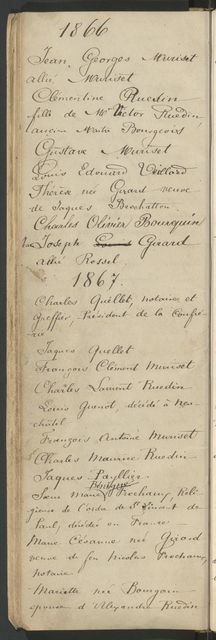 1866
Jean Georges Muriset
allié Muriset
Clémentine Ruedin
fille de Mr Victor Ruedin
ancien Maitre Bourgeois
Gustave Muriset
Louis Edouard Veillard
Thérèse née Girard veuve
de Jaques Brochatton
Charles Olivier Bourquin
Joseph Girard
allié Rossel
1867.
Charles Quellet, notaire et
greffier, Président de la Confré-
rie
Jaques Quellet
François Clément Muriset
Charles Laurent Ruedin
Louis Guenot, décédé à Neu-
châtel
François Antoine Muriset
Charles Maurice Ruedin
Jaques Payllier
Bénigne
Sœur Marie Frochaux, Reli-
gieuse de l'ordre de St Vincent de
Paul, décédée en France
Marie Césanne née Girard
veuve de feu Nicolas Frochaux,
notaire
Mariette née Bourgoin
épouse d'Alexandre Ruedin